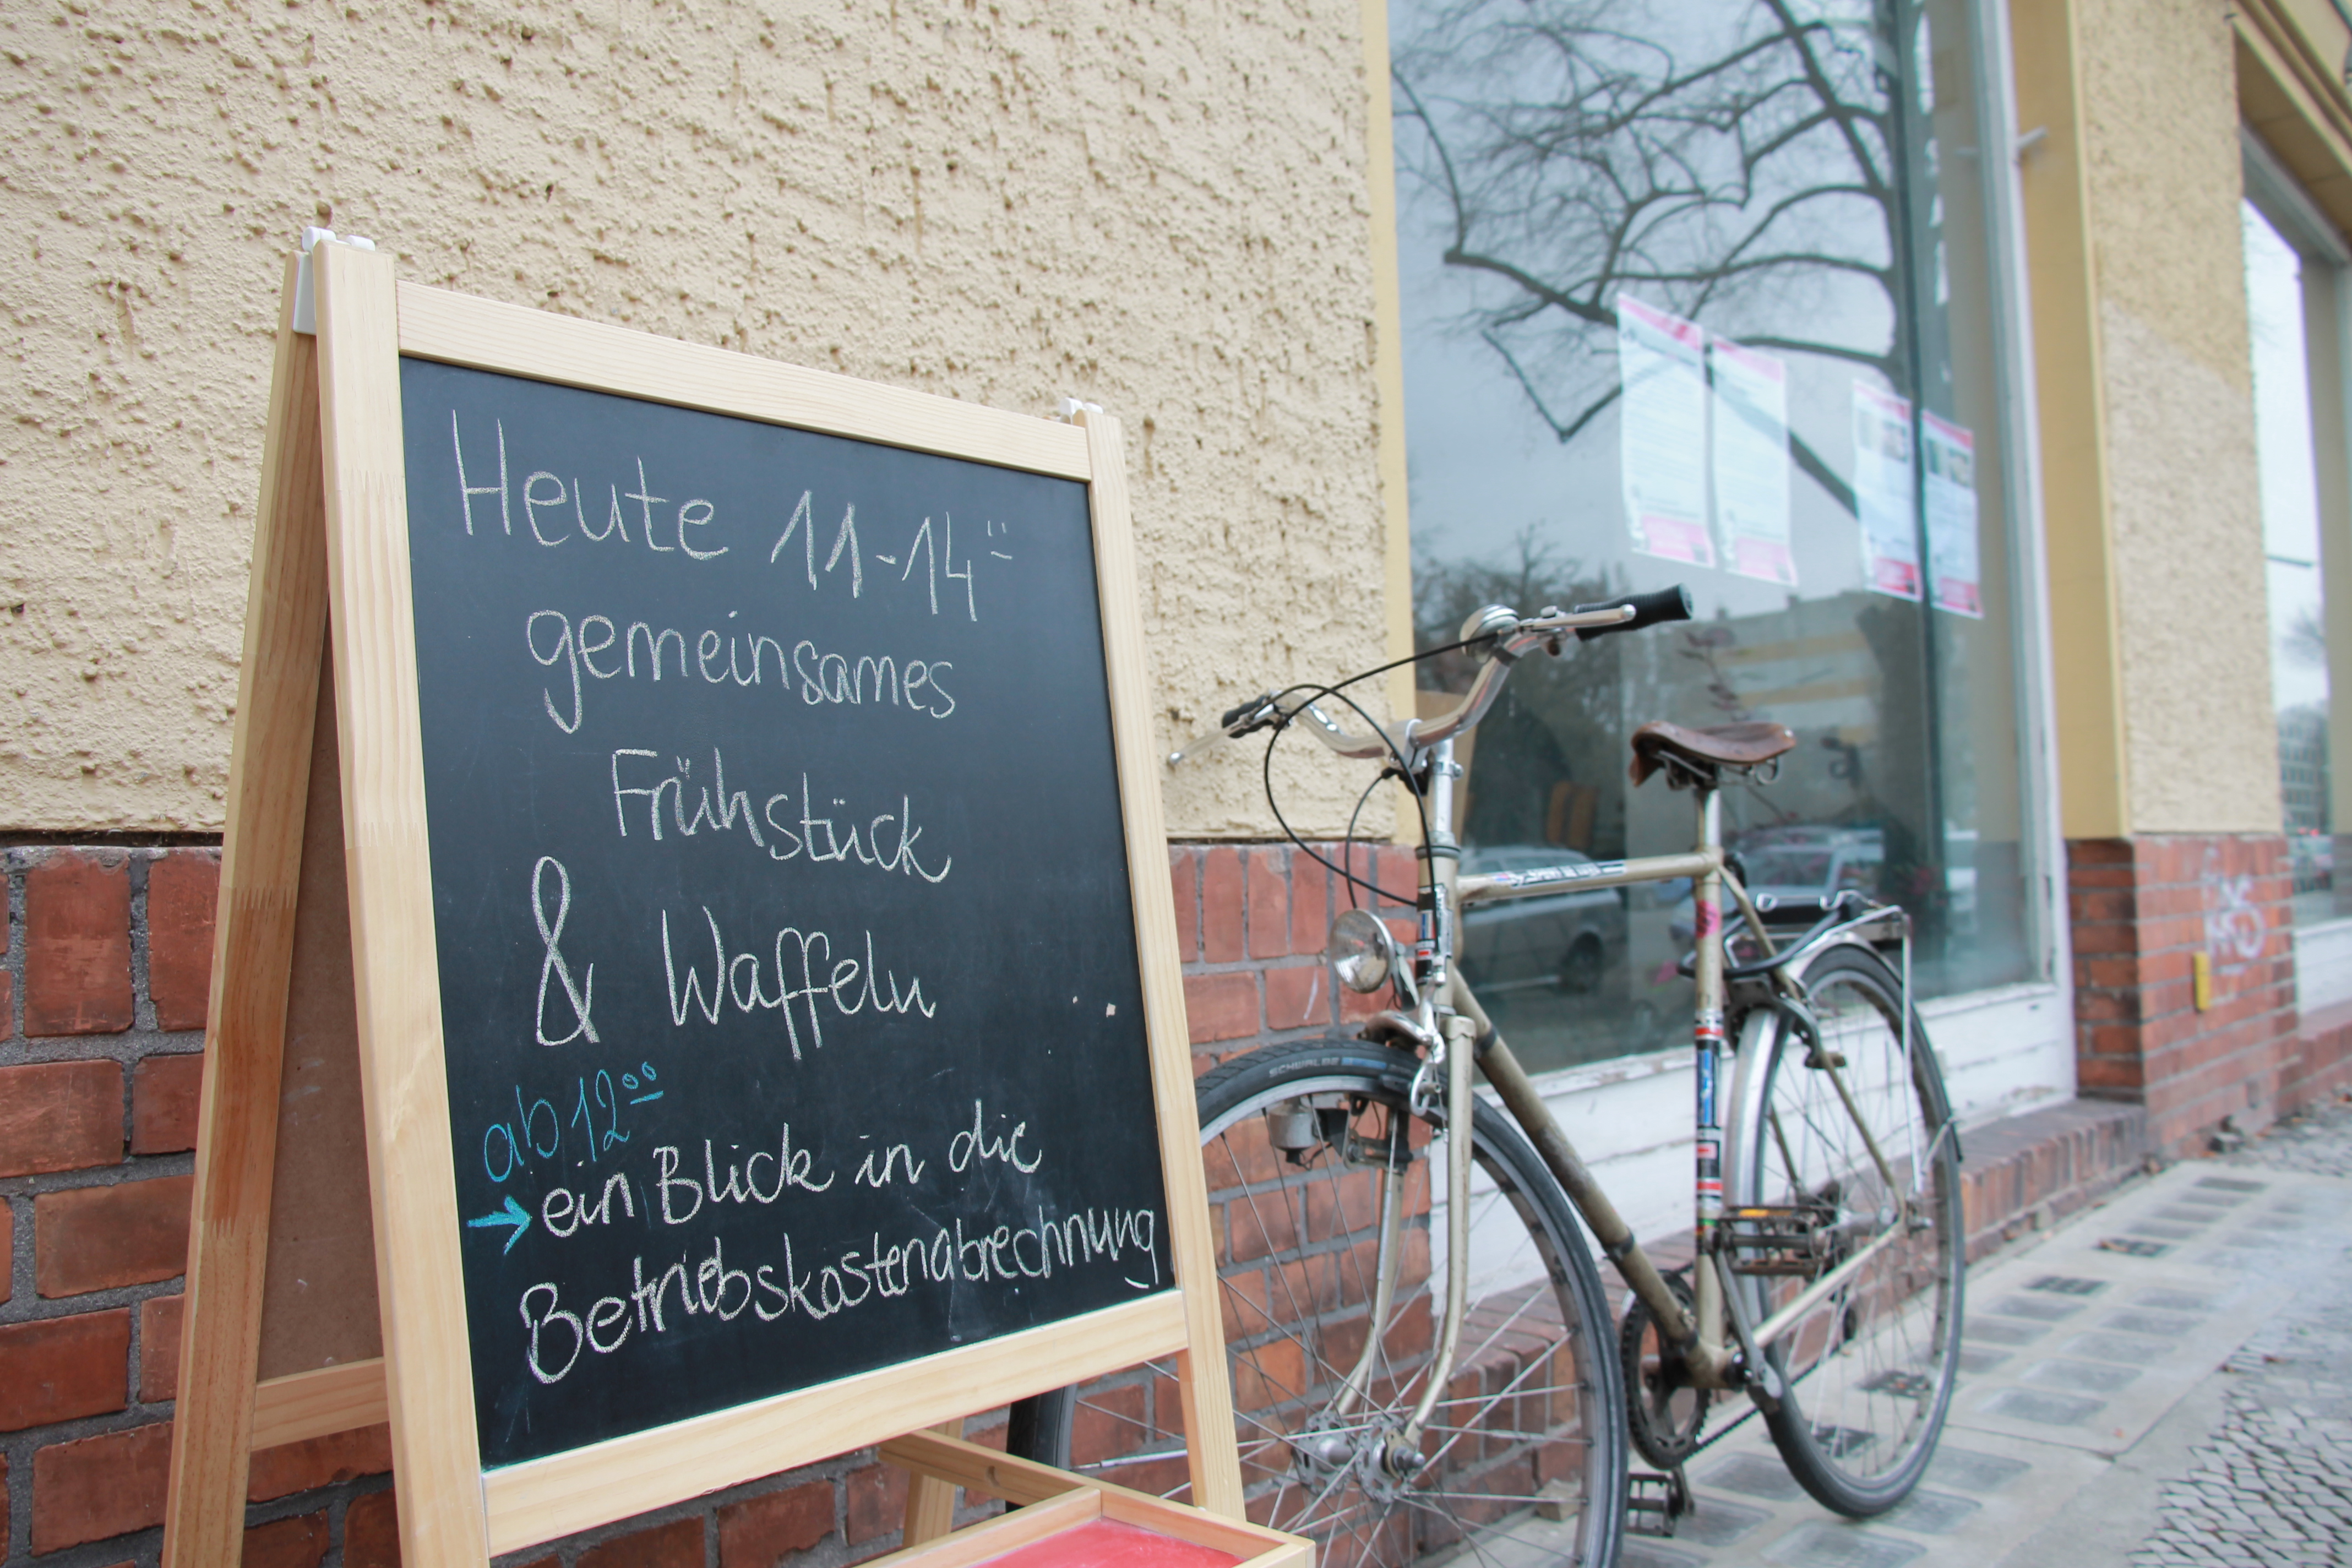 Heute 11-14⁰⁰
gemeinsames
Frühstück
& Waffeln
ab 12⁰⁰
→ ein Blick in die
Betriebskostenabrechnung
SCHWALBE